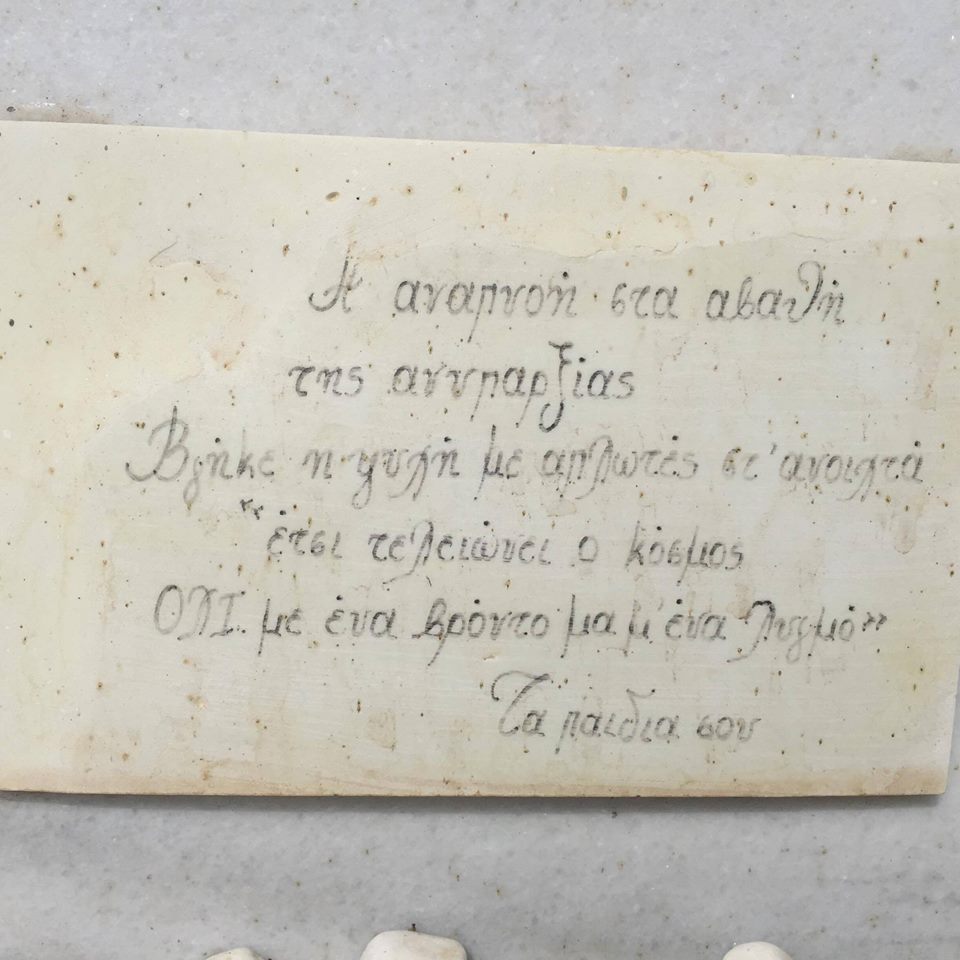 Η αναπνοή στα αβαθή
της ανυπαρξίας
Βγήκε η ψυχή με απλωτές στ' ανοιχτά
“έτσι τελειώνει ο κόσμος
ΟΧΙ με ένα βρόντο μα μ' ένα λυγμό”
Τα παιδια σου